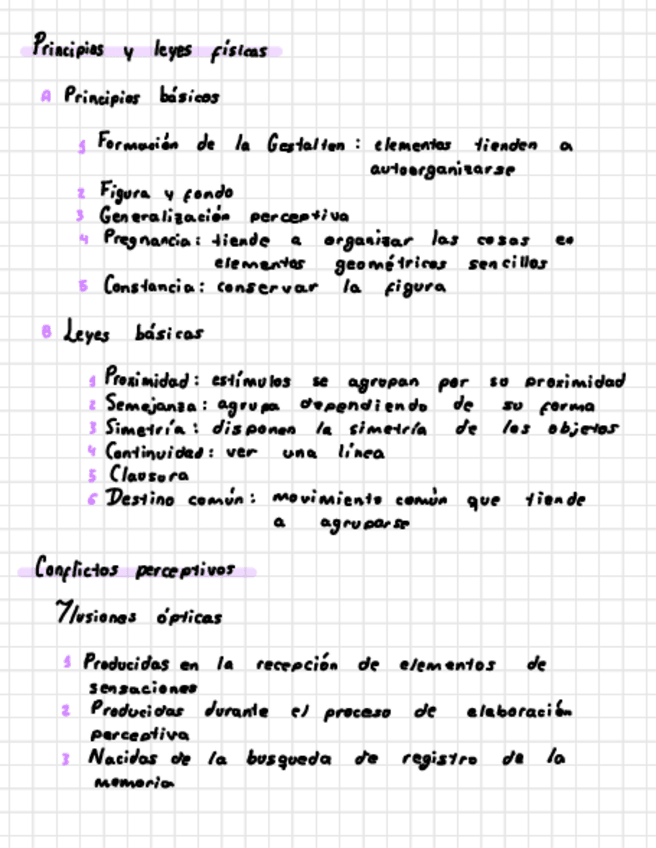 Principios y leyes físicas
A Principios básicos
1 Formación de la Gestalten: elementos tienden a
autoorganizarse
2 Figura y fondo
3 Generalización perceptiva
4 Pregnancia: tiende a organizar las cosas en
elementos geométricos sencillos
5 Constancia: conservar la figura
B Leyes básicas
1 Proximidad: estímulos se agrupan por su proximidad
2 Semejanza: agrupa dependiendo de su forma
3 Simetría: disponen la simetría de los objetos
4 Continuidad: ver una línea
5 Clausura
6 Destino común: movimiento común que tiende
a agruparse
Conflictos perceptivos
Ilusiones ópticas
1 Producidas en la recepción de elementos de
sensaciones
2 Producidas durante el proceso de elaboración
perceptiva
3 Nacidas de la busqueda de registro de la
memoria